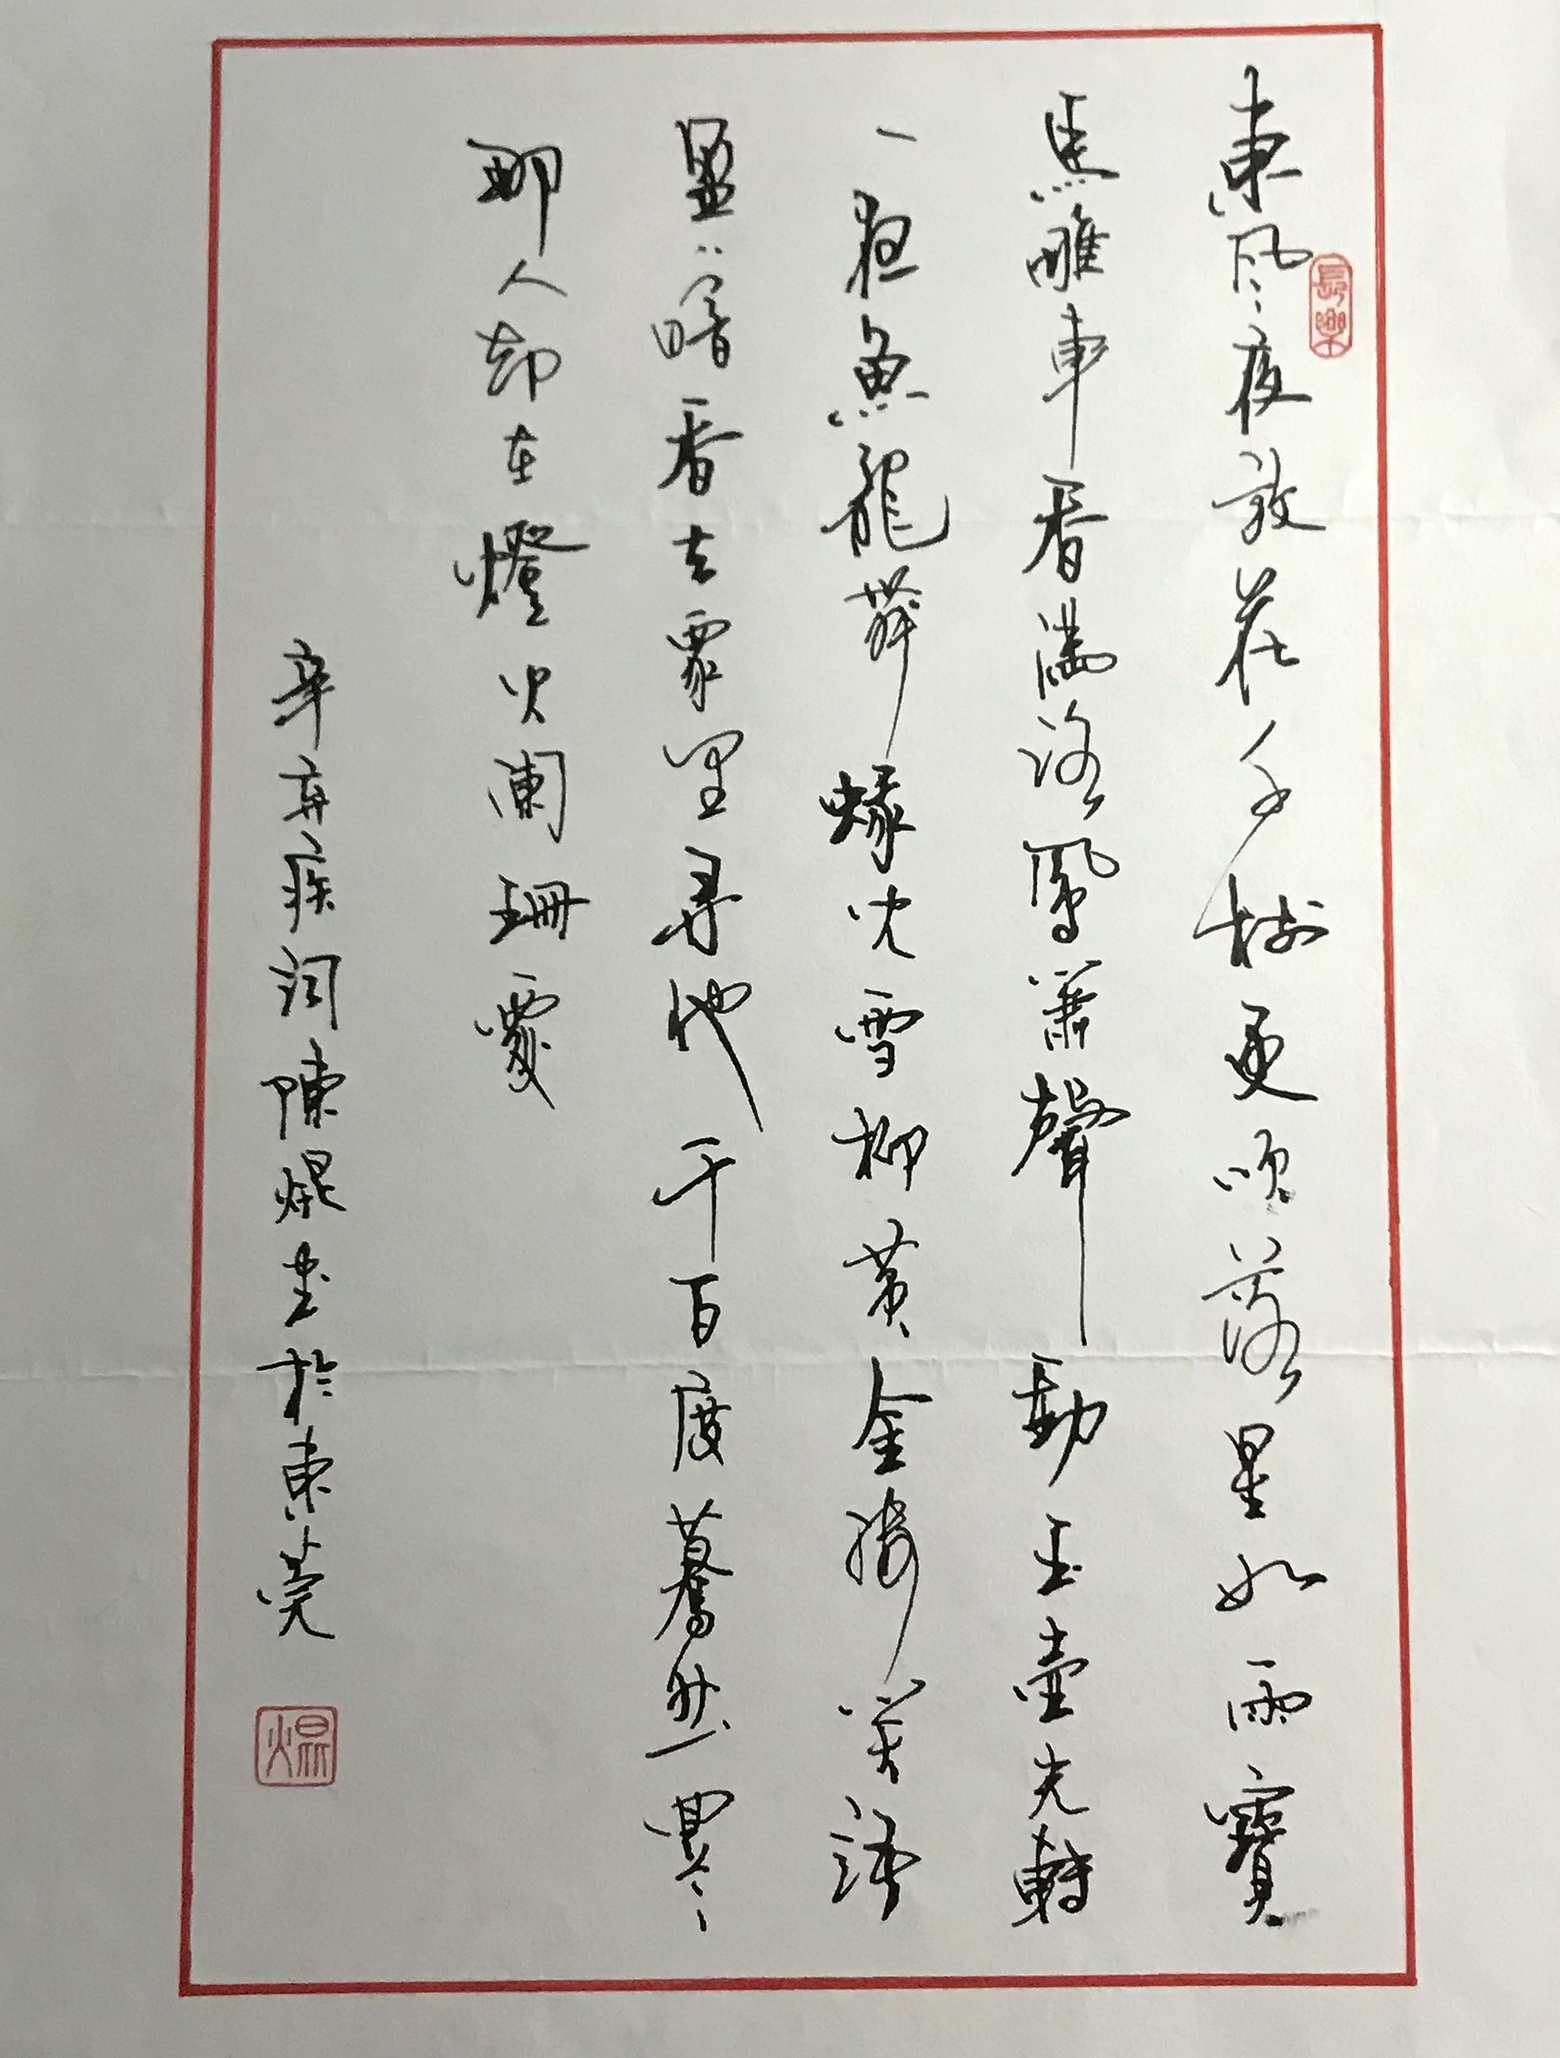 長樂
東風夜放花千樹更吹落星如雨寶
馬雕車香滿路鳳簫聲動玉壺光轉
一夜魚龍舞蛾兒雪柳黃金縷笑語
盈〻暗香去眾里尋他千百度驀然回首
那人却在燈火闌珊處
辛弃疾詞陳焜書於東莞
焜